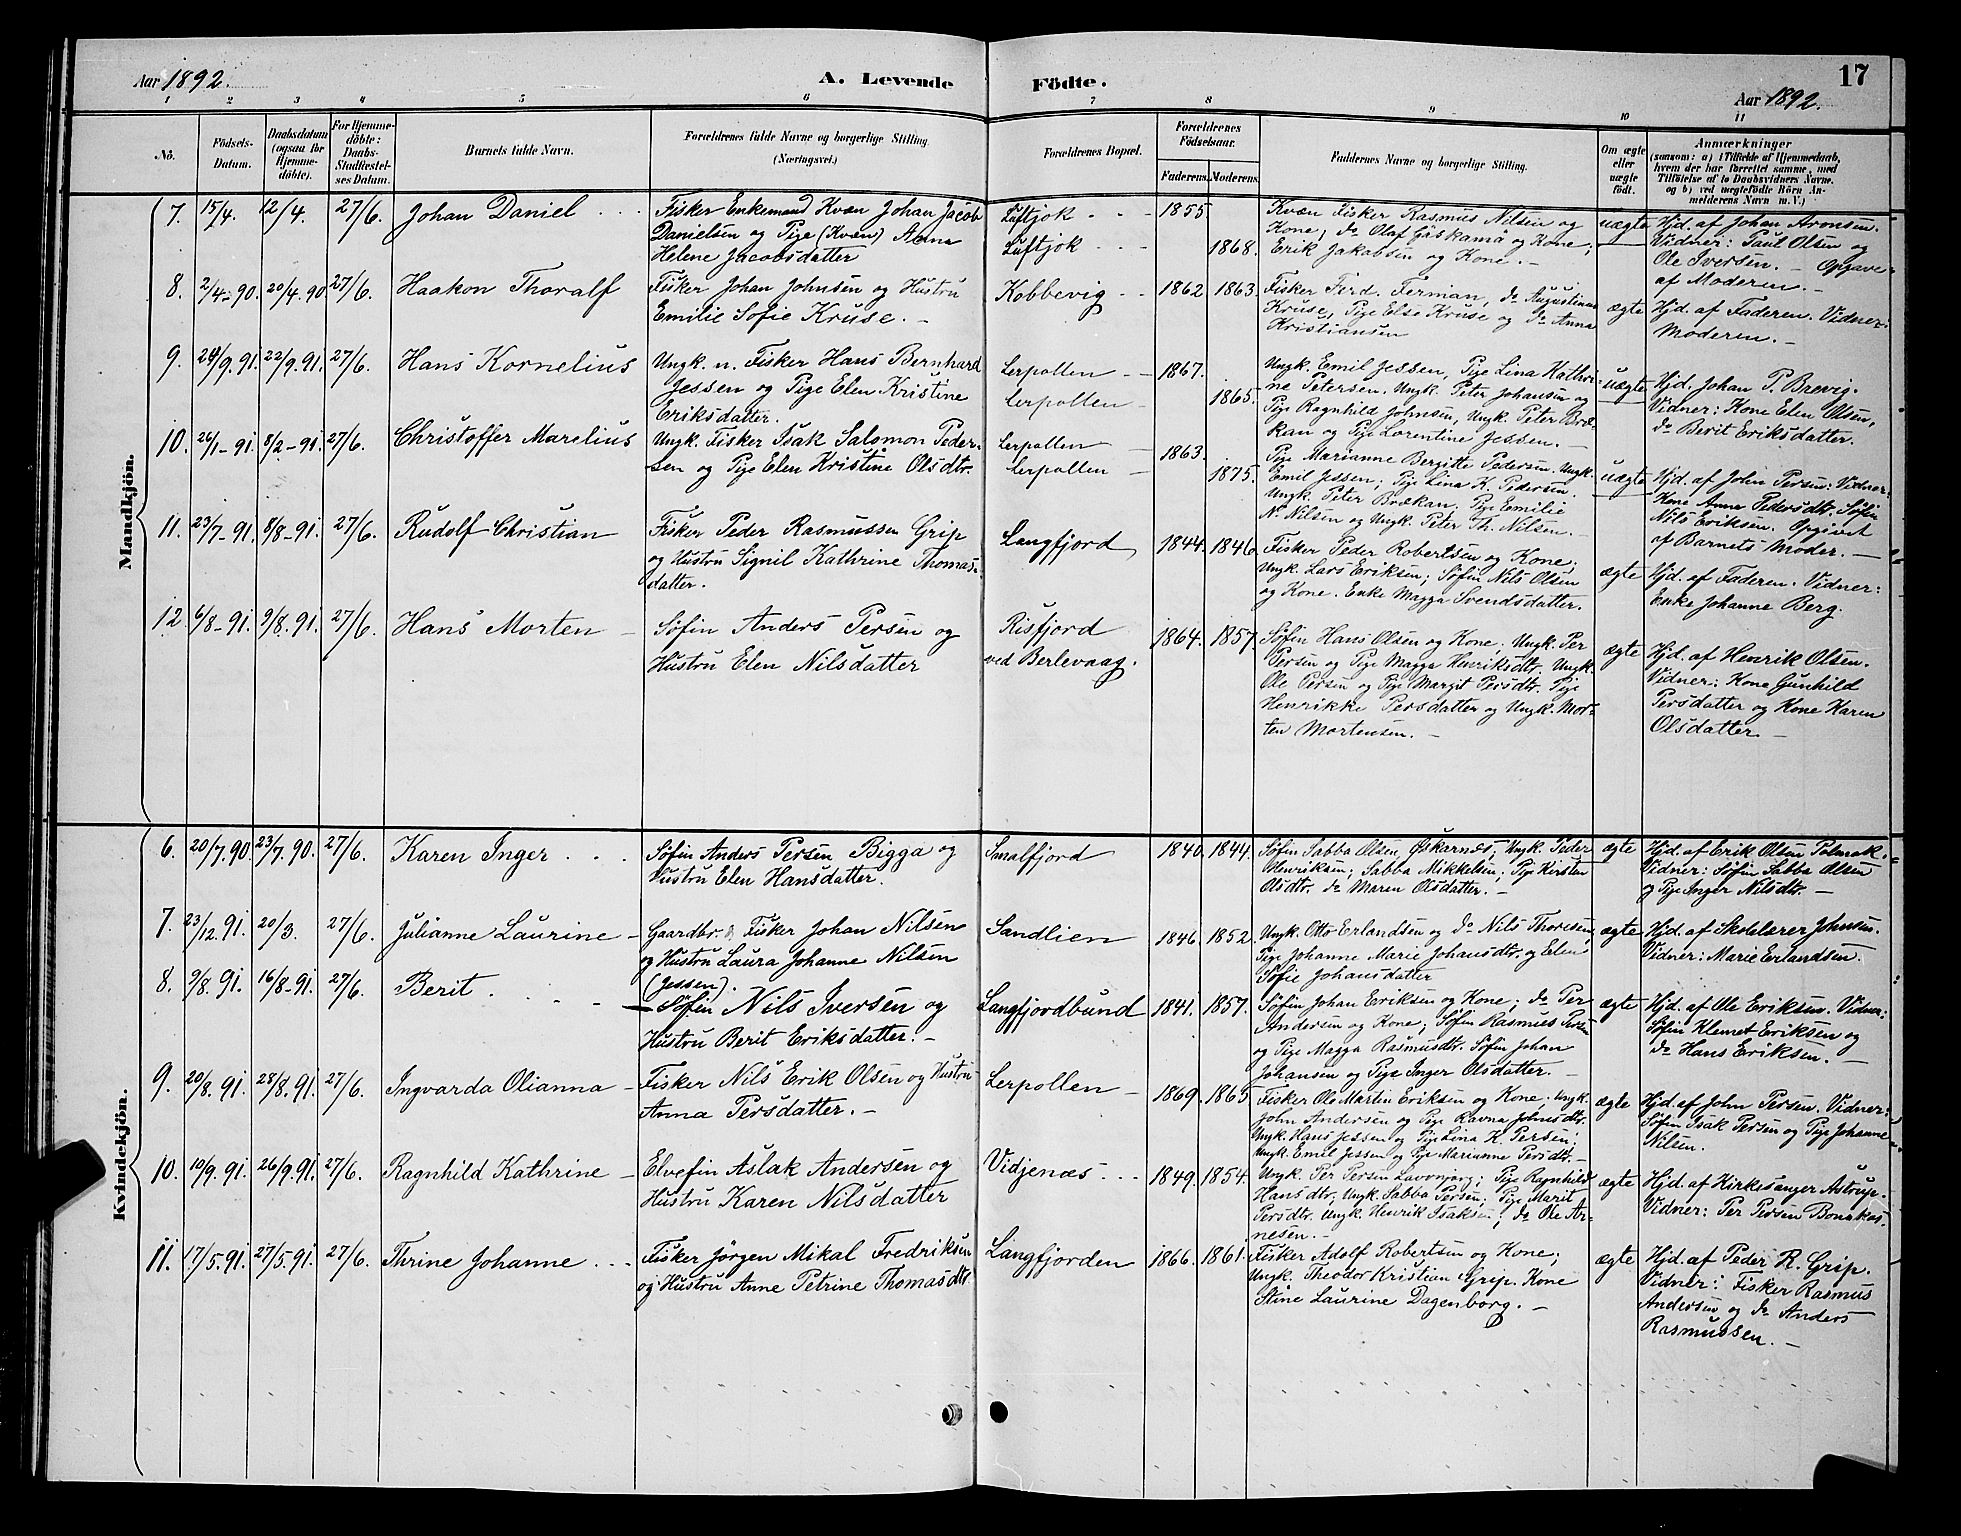 Aar 1892.
A. Levende Födte.
17
Aar 1892.
1 2 3 4 5 6 7 8 9 10 11
No.
Födsels-
Datum.
Daabsdatum
(ogsaa for
Hjemme-
döbte).
For Hjemme-
döbte:
Daabs-
Stadfæstel-
ses Datum.
Barnets fulde Navn.
Forældrenes fulde Navne og borgerlige Stilling
(Næringsvei.)
Forældrenes Bopæl.
Forældrenes
Födselsaar.
Faderens. Moderens.
Faddernes Navne og borgerlige Stilling.
Om ægte
eller
uægte
födt.
Anmærkninger
(saasom: a) i Tilfælde af Hjemmedaab,
hvem der har forrettet samme, med
Tilföielse af to Daabsvidners Navne.
og b) ved uægtefödte Börn An-
melderens Navn m. V.)
Mandkjön.
7. 15/4. 12/4. 27/6. Johan Daniel
Fisker Enkemand Kvæn Johan Jacob
Danielsen og Pige (Kvæn) Anna
Helene Jacobsdatter
Luftjok 1855.
Luftjok 1868.
Kvæn Fisker Rasmus Nilsen og
Kone, do Olaf Gaskama og Kone;
Erik Jakobsen og Kone. –
uægte
Hjd. af Johan Aronsen.
Vidner: Paul Olsen og
Ole Iversen. – Opgave
af Moderen. –
8. 2/4-90. 20/4.90. 27/6. Haakon Thoralf
Fisker Johan Johnsen og Hustru
Emilie Sofie Kruse. –
Kobbevig 1862 1863.
Fisker Ferd. Ferman, do Augustinus
Kruse, Pige Else Kruse og do Anna
Kristiansen
ægte
Hjd. af Faderen. Vidner:
Moderen. –
9. 24/9.91. 22/9.91. 27/6. Hans Kornelius
Ungk. n. Fisker Hans Bernhard
Jessen og Pige Elen Kristine
Eriksdatter.
Lerpollen 1867.
Lerpollen 1865.
Ungk. Emil Jessen, Pige Lina Kathri-
ne Petersen. Ungk. Peter Johansen og
Pige Ragnhild Johnsen, Ungk. Peter Bræ-
kan og Pige Lorentine Jessen.
uægte
Hjd. Johan P. Brevig.
Vidner: Kone Elen Olsen,
do Berit Eriksdatter.
10. 26/1-91. 8/2-91. 27/6. Christoffer Marelius
Ungk. Fisker Isak Salomon Peder-
sen og Pige Elen Kristine Olsdtr.
Lerpollen 1863.
Lerpollen 1875.
Pige Marianne Bergitte Pedersen. Ungk.
Emil Jessen; Pige Lina K. Pedersen.
Ungk. Peter Brækan, Pige Emilie
N. Nilsen og Ungk. Peter Th. Nilsen.
uægte
Hjd. af John Persen: Vidner:
Kone Anne Pedersdtr. Söfin
Nils Eriksen. Opgivet
af Barnets Moder. –
11. 23/7-91. 8/8-91. 27/6. Rudolf Christian
Fisker Peder Rasmussen Grip
og Hustru Signil Kathrine Thomas-
datter.
Langfjord 1844. 1846.
Fisker Peder Robertsen og Kone;
Ungk. Lars Eriksen; Söfin Nils Olsen
og Kone. Enke Magga Svendsdatter.
ægte
Hjd. af Faderen. Vidner:
Enke Johanne Berg.
12. 6/8-91. 9/8.91. 27/6. Hans Morten
Söfin Anders Persen og
Hustru Elen Nilsdatter
Risfjord
ved Berlevaag.
1864. 1857.
Söfin Hans Olsen og Kone; Ungk. Per
Persen og Pige Magga Henriksdtr. Ungk.
Ole Persen og Pige Margit Persdtr. Pige
Henrikke Persdatter og Ungk. Mor-
ten Mortensen. –
ægte
Hjd. af Henrik Olsen.
Vidner: Kone Gunhild
Persdatter og Kone Karen
Olsdatter –
Kvindekjön.
6. 20/7.90. 23/7.90. 27/6. Karen Inger
Söfin Anders Persen Bigga og
Hustru Elen Hansdatter.
Smalfjord 1840. 1844.
Söfin Sabba Olsen Øskarnæs, Ungk. Peder
Henriksen; Sabba Mikkelsen; Pige Kirsten
Olsdtr. do Maren Olsdatter. –
ægte
Hjd. af Erik Olsen Polmak.
Vidner: Söfin Sabba Olsen
og Pige Inger Nilsdtr. –
7. 23/12.91. 20/3. 27/6. Julianne Laurine
Gaardbr. & Fisker Johan Nilsen
og Hustru Laura Johanne Nilsen
(Jessen).
Sandlien 1846. 1852.
Ungk. Otto Erlandsen og do Nils Thoresen,
Pige Johanne Marie Johansdtr. og Elen
Sofie Johansdatter
ægte
Hjd. af Skolelærer Johnsen.
Vidner: Marie Erlandsen.
8. 9/8.91. 16/8-91. 27/6. Berit
Söfin Nils Iversen og
Hustru Berit Eriksdatter. –
Langfjordbund 1841. 1857.
Söfin Johan Eriksen og Kone; do Per
Andersen og Kone; Söfin Rasmus Persen
og Pige Magga Rasmusdtr. Söfin Johan
Johansen og Pige Inger Olsdatter. –
ægte
Hjd. af Ole Eriksen. Vidner:
Söfin Klemet Eriksen og
do Hans Eriksen. –
9. 20/8.91. 28/8.91. 27/6. Ingvarda Olianna
Fisker Nils Erik Olsen og Hustru
Anna Persdatter. –
Lerpollen 1869. 1865
Fisker Ole Martin Eriksen og Kone. Ungk.
John Andersen og Pige Ravna Johnsdtr.
Ungk. Hans Jessen og Pige Lina K. Persen;
Ungk. Emil Jessen og Pige Marianne Persdtr. –
ægte
Hjd. af John Persen. Vidner:
Söfin Isak Persen og Pige Johanne
Nilsen.
10. 19/9.91. 26/9.91. 27/6. Ragnhild Kathrine
Elvefin Aslak Andersen og
Hustru Karen Nilsdatter
Vidjenæs 1849. 1854.
Ungk. Per Persen Lavonjarg; Pige Ragnhild
Hansdtr, Ungk. Sabba Persen; Pige Marit
Persdtr. Ungk. Henrik Isaksen; do Ole Ar-
nesen. –
ægte
Hjd. af Kirkesanger Astrup.
Vidner: Per Persen Bonakas.
11. 17/5.91. 27/5.91. 27/6. Thrine Johanne
Fisker Jörgen Mikal Fredriksen
og Hustru Anne Petrine Thomasdtr.
Langfjorden 1866. 1861.
Fisker Adolf Robertsen og Kone;
Ungk. Theodor Kristian Grip. Kone
Stine Laurine Dagenborg. –
ægte
Hjd. af Peder R. Grip.
Vidner: Fisker Rasmus
Andersen og do Anders
Rasmussen. –